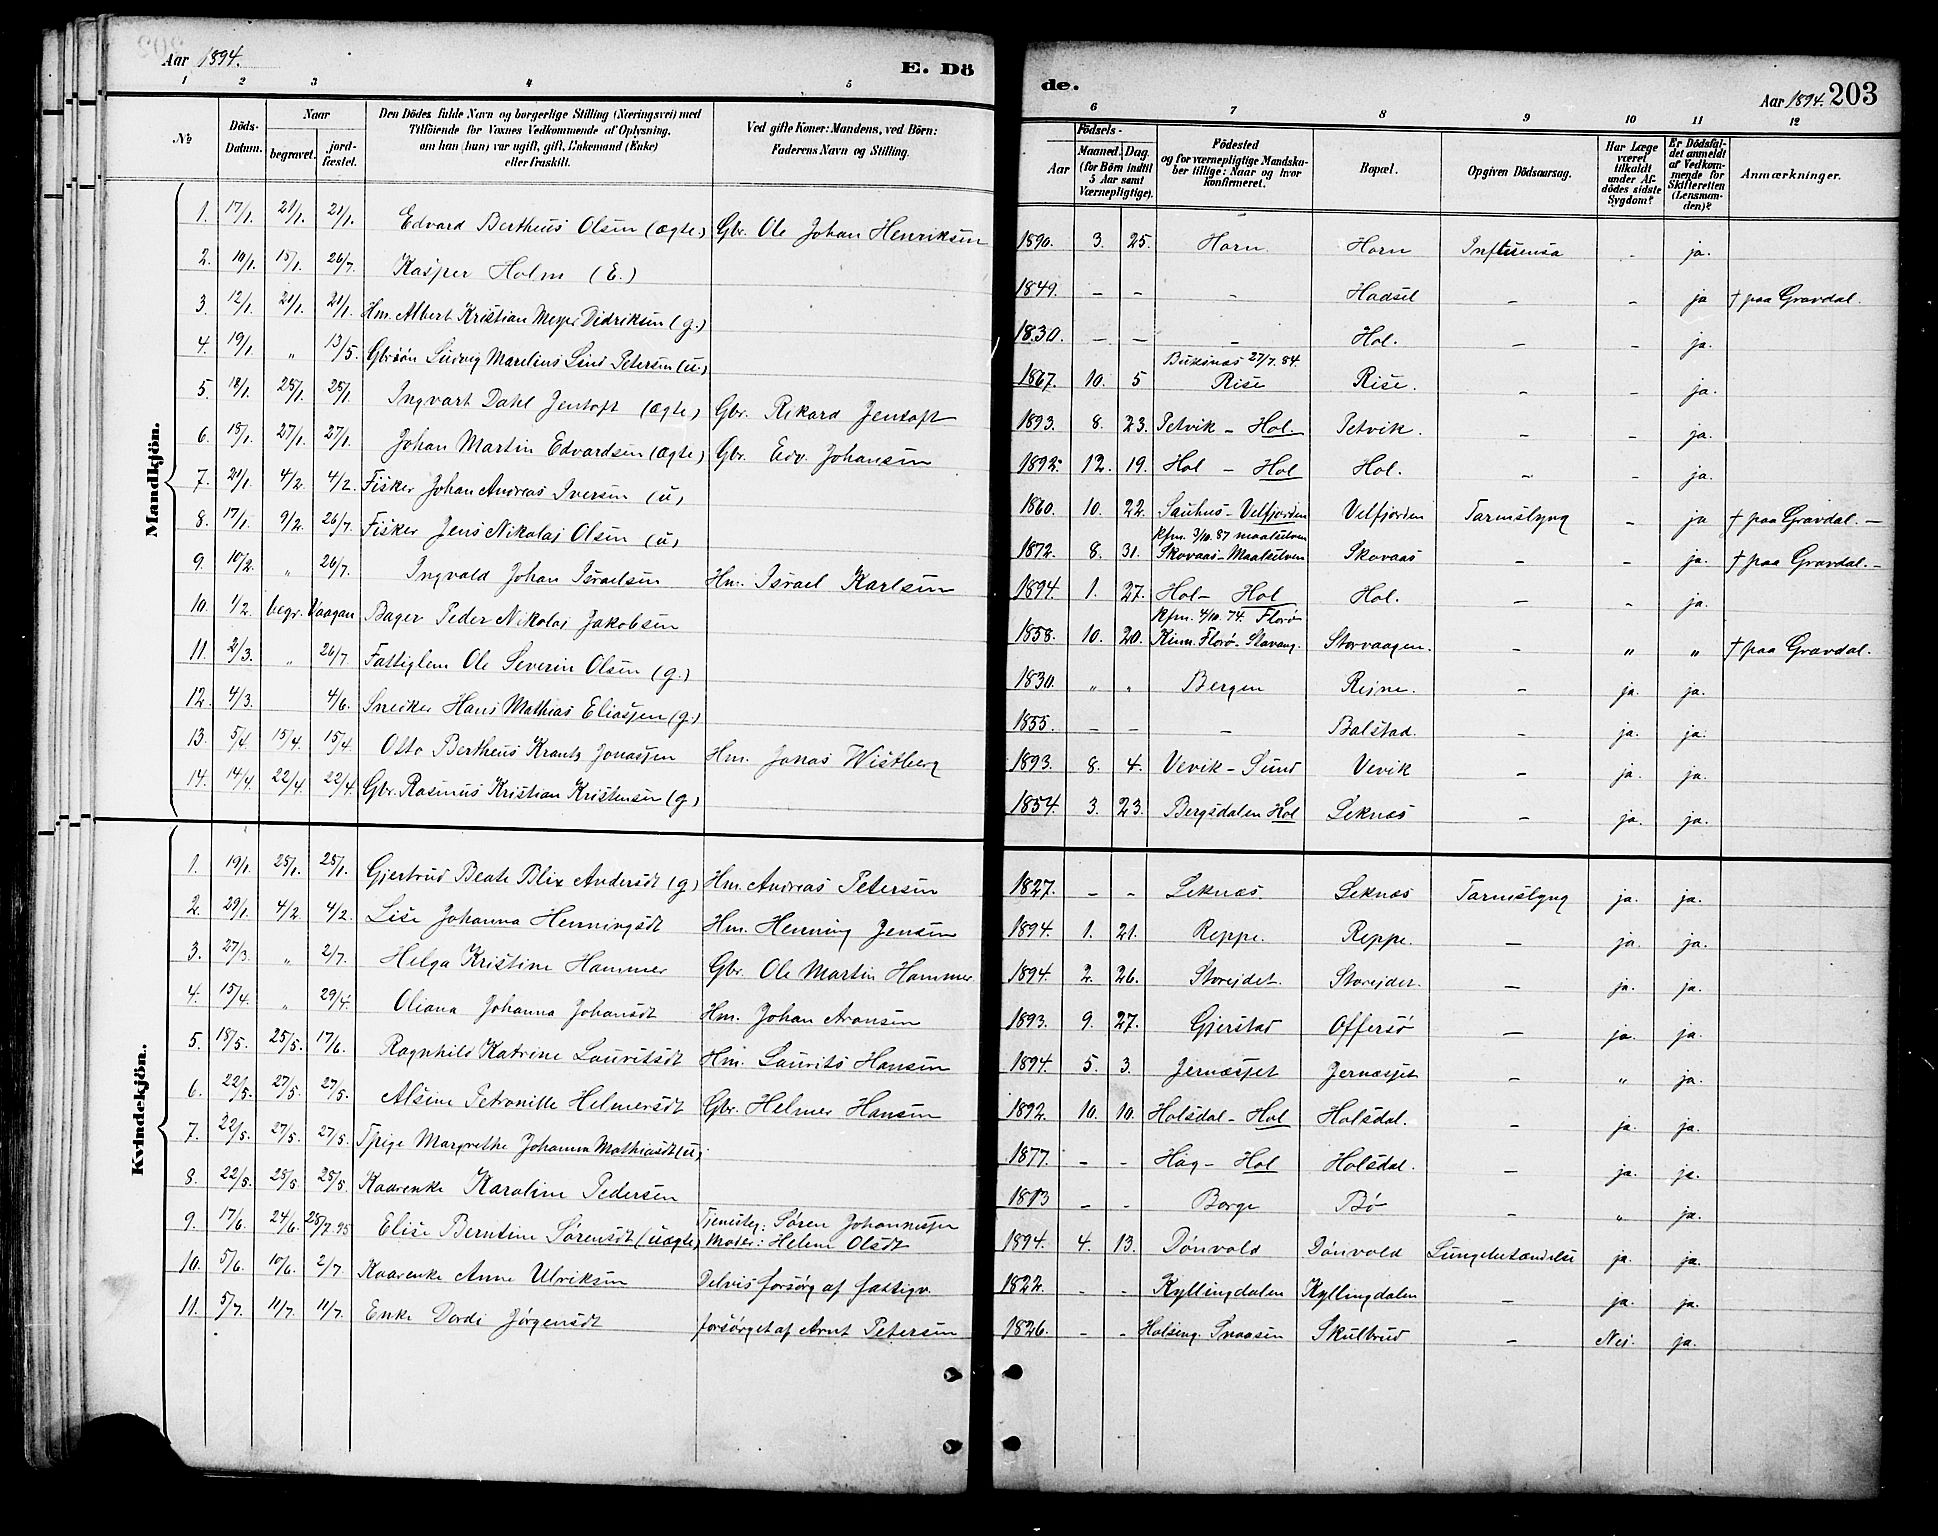 Aar 1894.
E. Dö
de.
Aar 1894. 203
1 2 3 4 5 6 7 8 9 10 11 12
№
Döds-Datum.
Naar
begravet.
jord-fæstet.
Den Dödes fulde Navn og borgerlige Stilling (Næringsvei) med
Tilföiende for Voxnes Vedkommende af Oplysning,
om han (hun) var ugift, gift, Enkemand (Enke)
eller fraskilt.
Ved gifte Koner: Mandens, ved Börn:
Faderens Navn og Stilling.
Födsels-
Aar
Maaned. Dag.
(for Börn indtil
5 Aar samt
Værnepligtige).
Födested
og for værnepligtige Mandska-
ber tillige: Naar og hvor
konfirmeret.
Bopæl.
Opgiven Dödsaarsag.
Har Læge
været
tilkaldt
under Af-
dödes sidste
Sygdom?
Er Dödsfal-
det anmeldt
af Vedkom-
mende for
Skifteretten
(Lensman-
den)?
Anmærkninger.
Mandkjön.
1. 17/1 21/1 21/1 Edvard Bertheus Olsen (ægte) Gbr. Ole Johan Henriksen 1890. 3. 25. Horn. Horn Influensa - ja.
2. 10/1 15/1 26/7 Kasper Holm (E.) 1849. - - - Hadsel - - ja † paa Gravdal.
3. 12/1 21/1 21/1 Hm. Albert Kristian Meyer Didriksen (g.) 1830. - - - Hol. - - ja.
4. 19/1 " 13/5. Gbrsøn Ludvig Marelius Lind Petersen (u.) 1867. 10. 5 Buksnæs 27/7. 84. Rise Rise. - - ja.
5. 18/1 25/1 25/1 Ingvart Dahl Jentoft (ægte) Gbr. Rikard Jentoft 1893. 8. 23. Petvik - Hol. Petvik. - - ja.
6. 18/1 27/1 27/1 Johan Martin Edvardsen (ægte) Gbr. Edv. Johansen 1892. 12. 19. Hol - Hol Hol. - - ja.
7. 21/1 4/2 4/2. Fisker Johan Andreas Iversen (u) 1860. 10. 22. Sauhus - Velfjorden Velfjorden Tarmslyng - ja † paa Gravdal. -
8. 17/1 9/2. 26/7 Fisker Jens Nikolai Olsen (u) 1872. 8. 31. Kfm. 3/10. 87 maalselven Skovaas - Maalselven Skovaas - - ja. † paa Gravdal. -
9. 10/2. " 26/7. Ingvald Johan Israelsen Hm. Israel Karlsen 1894. 1. 27. Hol - Hol Hol. - - ja.
10. 4/2. begr. Vaagan Bager Peder Nikolai Jakobsen 1858. 10. 20. Kfm. 4/10. 74. Florø Kinn. Florø - Stavang. Storvaagen. - " " † paa Gravdal.
11. 2/3. " 26/7. Fattiglem Ole Severin Olsen (g.) 1830. " " Bergen Reine. - ja. ja.
12. 4/3. 4/6. Sneiker Hans Mathias Eliassen (g.) 1855. - - - Balstad. - ja. ja.
13. 5/4. 15/4. 15/4. Otto Bertheus Krantz Jonassen Hm. Jonas Wistberg 1893. 8. 4. Vevik - Sund Vevik - ja. ja.
14. 14/4. 22/4. 22/4 Gbr. Rasmus Kristian Kristensen (g) 1854. 3. 23. Bergsdalen Hol Leknæs - ja. ja.
Kvindekjön.
1. 19/1. 25/1. 25/1. Gjertrud Beate Blix Andersdt (g) Hm. Andreas Petersen 1827. - - Leknæs. Leknæs Tarmslyng ja. ja.
2. 29/1. 4/2. 4/2. Lise Johanna Henningsdt Hm. Henning Jensen 1894. 1. 21. Reppe. Reppe. - ja. ja.
3. 27/3. " 2/7. Helga Kristine Hammer Gbr. Ole Martin Hammer 1894. 2. 26. Storeidet. Storeidet. - ja. ja.
4. 15/4. " 29/4. Oliana Johanna Johansdt Hm. Johan Aronsen 1893. 9. 27. Gjerstad Offersø - ja. ja.
5. 18/5. 25/5. 17/6. Ragnhild Katrine Lauritsdt Hm. Laurits Hansen 1894. 5. 3. Jernæsset Jernæsset - " ja.
6. 22/5. 27/5. 27/5. Alsine Petronille Helmersdt Gbr. Helmer Hansen 1892. 10. 10. Holsdal - Hol Holsdal. - ja. ja.
7. 22/5. 27/5. 27/5. Tpige Margrethe Johanna Mathiasdt (u) 1877. - - Hag - Hol Holsdal. - ja. ja.
8. 22/5. 25/5. 25/5 Kaarenke Karoline Pedersen 1813 - - Borge Bø - " ja.
9. 17/6. 24/6. 28/7. 95 Elise Berntine Sørensdt (uægte) Tjenesteg: Søren Johannessen Moder: Helene Olsdt 1894. 4. 13. Dønvold Dønvold Lungebetændelse ja. ja.
10. 5/6. 10/6. 2/7. Kaarenke Anne Ulriksen Delvis forsørg af fattigv. 1822. - - Kyllingdalen Kyllingdalen - ja. ja.
11. 5/7. 11/7. 11/7. Enke Dordi Jørgensdt forsørget af Arnt Petersen 1826. - - Snaasen Skulbrud - Nei. ja.